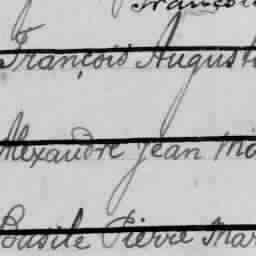 François
François August
Alexandre Jean Mi
Basile Pierre Mar